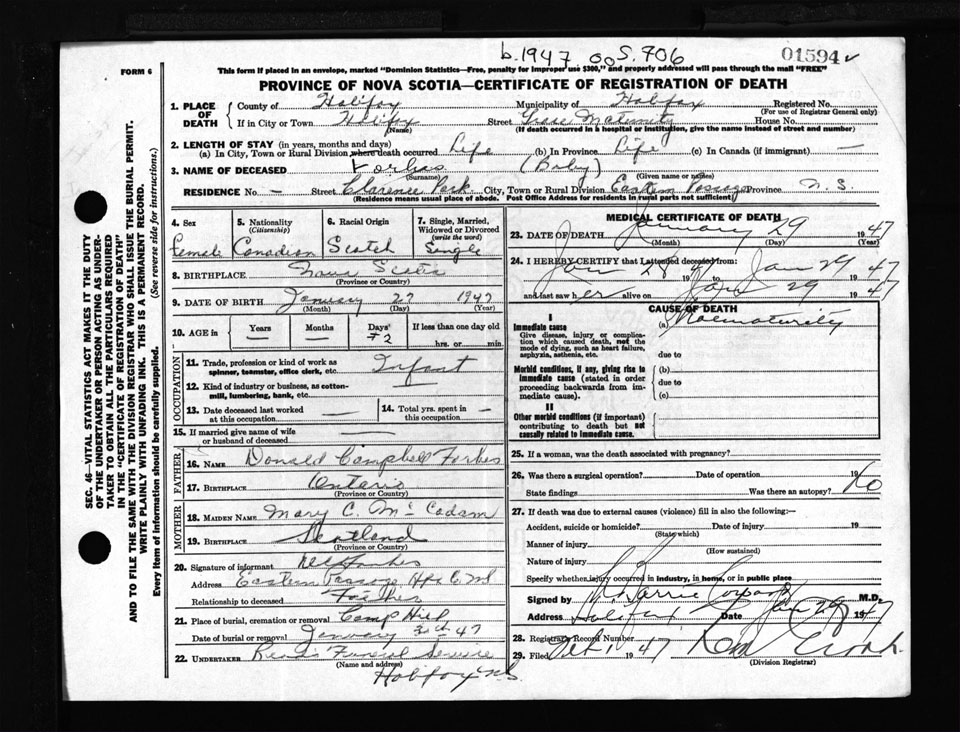 b. 1947 00S. 706
01594
FORM 6
This form if placed in an envelope, marked "Dominion Statistics—Free, penalty for improper use $300," and properly addressed will pass through the mail "FREE"
PROVINCE OF NOVA SCOTIA—CERTIFICATE OF REGISTRATION OF DEATH
1. PLACE OF DEATH
County of Halifax Municipality of Halifax Registered No.
(For use of Registrar General only)
If in City or Town Halifax Street Grace Maternity House No.
(Name) (If death occurred in a hospital or institution, give the name instead of street and number)
2. LENGTH OF STAY (in years, months and days)
(a) In City, Town or Rural Division where death occurred Life (b) In Province Life (c) In Canada (if immigrant) —
3. NAME OF DECEASED Forbes (Baby)
(Surname) (Given name or names)
RESIDENCE No. — Street Clarence Park City, Town or Rural Division Eastern Passage Province N.S.
(Residence means usual place of abode. Post Office Address for residents in rural parts not sufficient)
4. Sex Female
5. Nationality (Citizenship) Canadian
6. Racial Origin Scotch
7. Single, Married, Widowed or Divorced (write the word) Single
8. BIRTHPLACE Nova Scotia
(Province or Country)
9. DATE OF BIRTH January 27 1947
(Month) (Day) (Year)
10. AGE in Years — Months — Days 2 If less than one day old hrs. or min.
OCCUPATION
11. Trade, profession or kind of work as spinner, teamster, office clerk, etc. Infant
12. Kind of industry or business, as cotton-mill, lumbering, bank, etc.
13. Date deceased last worked at this occupation — 14. Total yrs. spent in this occupation —
15. If married give name of wife or husband of deceased —
FATHER
16. NAME Donald Campbell Forbes
17. BIRTHPLACE Ontario
(Province or Country)
MOTHER
18. MAIDEN NAME Mary C. McCadam
19. BIRTHPLACE Scotland
(Province or Country)
20. Signature of informant Forbes
Address Eastern Passage, Hfx Co. NS
Relationship to deceased Father
21. Place of burial, cremation or removal Camp Hill
Date of burial or removal January 30th 47
22. UNDERTAKER Funeral Service
(Name and address)
Halifax NS.
MEDICAL CERTIFICATE OF DEATH
23. DATE OF DEATH January 29 1947
(Month) (Day) (Year)
24. I HEREBY CERTIFY that I attended deceased from:
Jan 28 1947 to Jan 29 1947
and last saw her alive on Jan 29 1947
CAUSE OF DEATH
I
Immediate cause (a)
Give disease, injury or complication which caused death, not the mode of dying, such as heart failure, asphyxia, asthenia, etc.
due to
Morbid conditions, if any, giving rise to immediate cause (stated in order proceeding backwards from immediate cause).
(b)
due to
(c)
II
Other morbid conditions (if important) contributing to death but not causally related to immediate cause.
25. If a woman, was the death associated with pregnancy?
26. Was there a surgical operation? Date of operation 19
State findings Was there an autopsy? No
27. If death was due to external causes (violence) fill in also the following:—
Accident, suicide or homicide? Date of injury 19
(State which)
Manner of injury
(How sustained)
Nature of injury
Specify whether injury occurred in industry, in home, or in public place
Signed by M.D.
Address Halifax Date Jan 29 1947
28. Registrar's Record Number
29. Filed Feb 1 1947
(Division Registrar)
SEC. 46—VITAL STATISTICS ACT MAKES IT THE DUTY
OF THE UNDERTAKER OR PERSON ACTING AS UNDER-
TAKER TO OBTAIN ALL THE PARTICULARS REQUIRED
IN THE "CERTIFICATE OF REGISTRATION OF DEATH"
AND TO FILE THE SAME WITH THE DIVISION REGISTRAR WHO SHALL ISSUE THE BURIAL PERMIT.
WRITE PLAINLY WITH UNFADING INK. THIS IS A PERMANENT RECORD.
Every Item of Information should be carefully supplied. (See reverse side for instructions.)